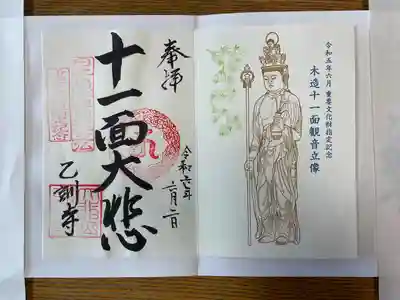 令和五年六月 重要文化財指定記念
木造十一面観音立像
奉拝
令和六年
六月二日
十一面大悲
乙訓寺